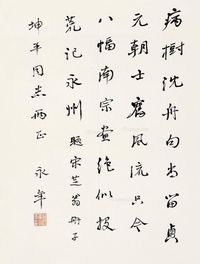 病樹沈舟句尚留貞
元朝士舊風流只今
八幅南宗畫絕似投
荒記永州 題宋芝翁冊子
坤年同志兩正 永年